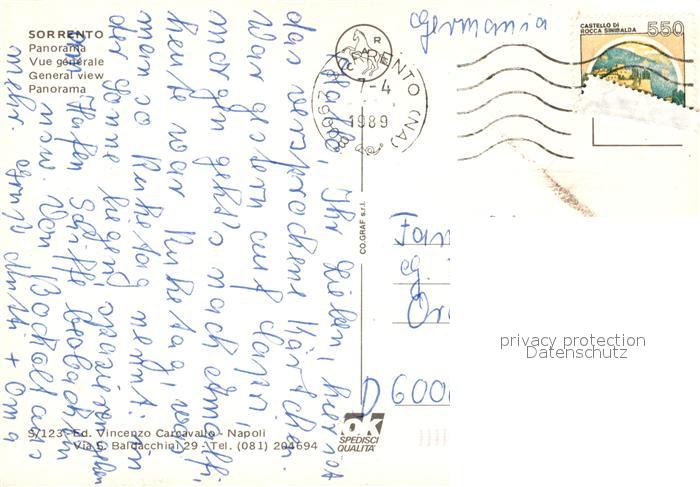 SORRENTO
Panorama
Vue générale
General view
Panorama
Hallo, Ihr Lieben, hier ist
das versprochene Kärtchen.
War gestern auf Capri,
morgen geht's nach Amalfi,
heute war Ruhetag, was
man so Ruhetag nennt: in
der Sonne liegen, spazieren gehen
am Hafen Schiffe beobachten
Von
mehr. Gruß + Oma
Germania
CASTELLO DI
ROCCA SINIBALDA
550
SORRENTO (NA)
-4
1989
CO.GRAF s.r.l.
Fam
G.
D 600
privacy protection
Datenschutz
S/123 - Ed. Vincenzo Carcavallo - Napoli
Via S. Baldacchini 29 - Tel. (081) 204694
OK
SPEDISCI
QUALITA'